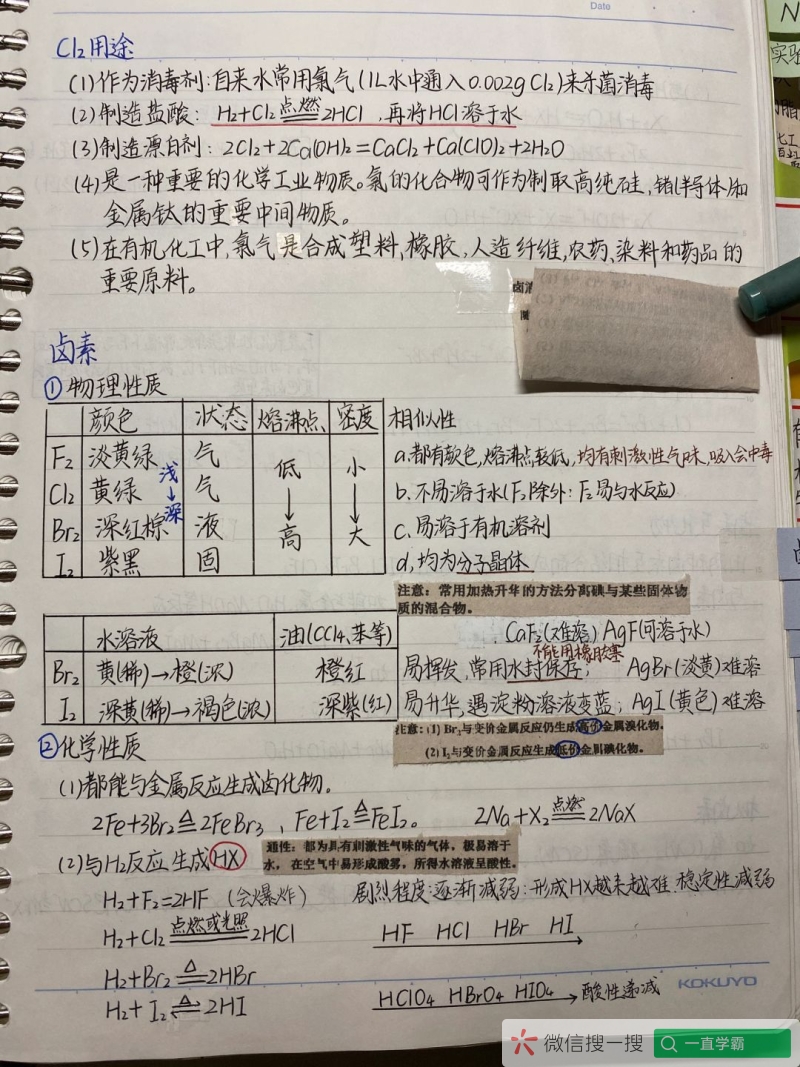 Date
Cl₂用途
(1)作为消毒剂:自来水常用氯气(1L水中通入0.002g Cl₂)来杀菌消毒
(2)制造盐酸: H₂+Cl₂ 点燃 2HCl ,再将HCl溶于水
(3)制造漂白剂: 2Cl₂+2Ca(OH)₂=CaCl₂+Ca(ClO)₂+2H₂O
(4)是一种重要的化学工业物质。氯的化合物可作为制取高纯硅,锗(半导体)和
金属钛的重要中间物质。
(5)在有机化工中,氯气是合成塑料、橡胶,人造纤维,农药、染料和药品的
重要原料。
卤素
①物理性质
颜色 状态 熔沸点 密度 相似性
F₂ 淡黄绿 气 低 小 a.都有颜色,熔沸点较低,均有刺激性气味,吸入会中毒
Cl₂ 黄绿 气 b.不易溶于水(F₂除外:F₂易与水反应)
浅→深
Br₂ 深红棕 液 高 大 c.易溶于有机溶剂
I₂ 紫黑 固 d,均为分子晶体
注意:常用加热升华的方法分离碘与某些固体物
质的混合物。
水溶液 油(CCl₄、苯等) CaF₂(难溶) AgF(可溶于水)
不能用橡胶塞
Br₂ 黄(稀)→橙(浓) 橙红 易挥发,常用水封保存; AgBr(淡黄)难溶
I₂ 深黄(稀)→褐色(浓) 深紫(红) 易升华,遇淀粉溶液变蓝; AgI(黄色)难溶
注意:(1) Br₂与变价金属反应仍生成高价金属溴化物。
(2) I₂与变价金属反应生成低价金属碘化物。
②化学性质
(1)都能与金属反应生成卤化物。
2Fe+3Br₂ △ 2FeBr₃ 、Fe+I₂ △ FeI₂。 2Na+X₂ 点燃 2NaX
(2)与H₂反应生成HX 通性:都为具有刺激性气味的气体,极易溶于
水,在空气中易形成酸雾,所得水溶液呈酸性。
H₂+F₂=2HF (会爆炸) 剧烈程度:逐渐减弱:形成HX越来越难.稳定性减弱
H₂+Cl₂ 点燃或光照 2HCl HF HCl HBr HI
H₂+Br₂ △ 2HBr
H₂+I₂ △⇌ 2HI HClO₄ HBrO₄ HIO₄ → 酸性递减
KOKUYO
微信搜一搜 一直学霸